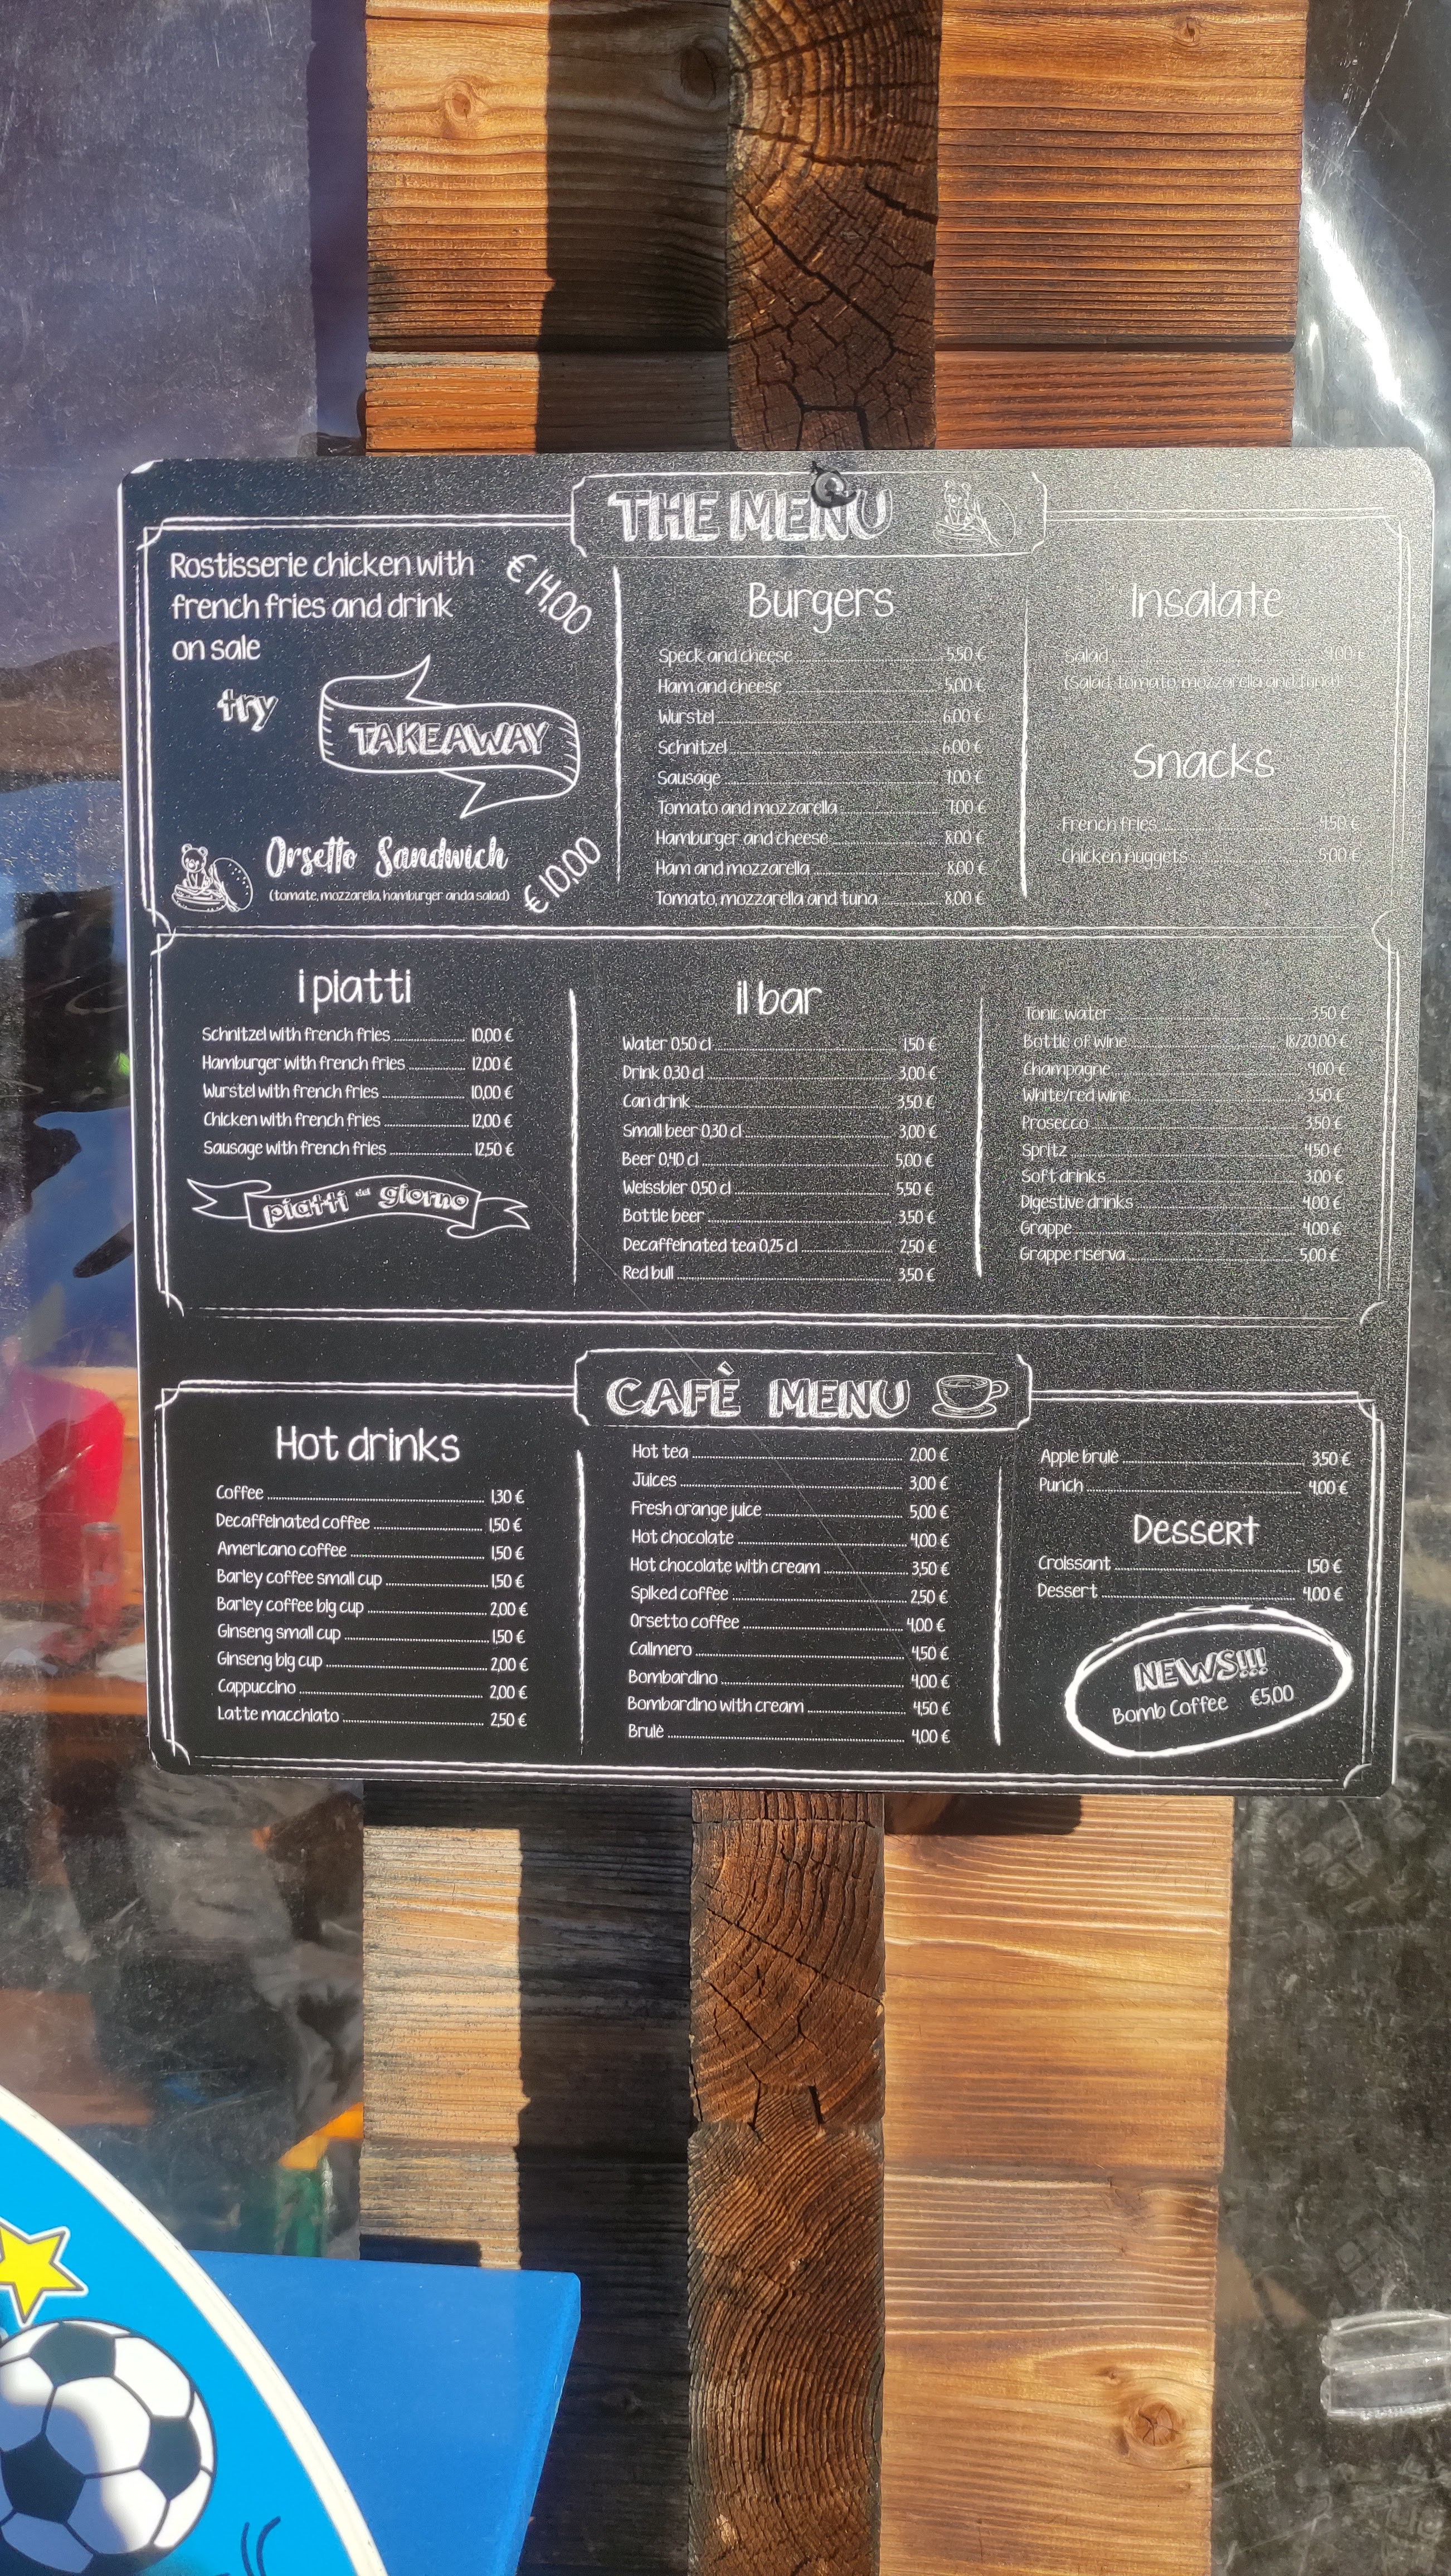 THE MENU
Rostisserie chicken with
french fries and drink
on sale
€ 14,00
try
TAKEAWAY
Orsetto Sandwich
(tomate, mozzarella, hamburger anda salad)
€ 10,00
Burgers
Speck and cheese 5,50 €
Ham and cheese 5,00 €
Wurstel 6,00 €
Schnitzel 6,00 €
Sausage 7,00 €
Tomato and mozzarella 7,00 €
Hamburger and cheese 8,00 €
Ham and mozzarella 8,00 €
Tomato, mozzarella and tuna 8,00 €
Insalate
Salad 9,00 €
(Salad, tomato, mozzarella and tuna)
Snacks
French fries 4,50 €
Chicken nuggets 5,00 €
i piatti
Schnitzel with french fries 10,00 €
Hamburger with french fries 12,00 €
Wurstel with french fries 10,00 €
Chicken with french fries 12,00 €
Sausage with french fries 12,50 €
piatti del giorno
il bar
Water 0,50 cl 1,50 €
Drink 0.30 cl 3,00 €
Can drink 3,50 €
Small beer 0,30 cl 3,00 €
Beer 0,40 cl 5,00 €
Weissbier 0,50 cl 5,50 €
Bottle beer 3,50 €
Decaffeinated tea 0,25 cl 2,50 €
Red bull 3,50 €
Tonic water 3,50 €
Bottle of wine 18/20,00 €
Champagne 9,00 €
White/red wine 3,50 €
Prosecco 3,50 €
Spritz 4,50 €
Soft drinks 3,00 €
Digestive drinks 4,00 €
Grappe 4,00 €
Grappe riserva 5,00 €
CAFÈ MENU
Hot drinks
Coffee 1,30 €
Decaffeinated coffee 1,50 €
Americano coffee 1,50 €
Barley coffee small cup 1,50 €
Barley coffee big cup 2,00 €
Ginseng small cup 1,50 €
Ginseng big cup 2,00 €
Cappuccino 2,00 €
Latte macchiato 2,50 €
Hot tea 2,00 €
Juices 3,00 €
Fresh orange juice 5,00 €
Hot chocolate 4,00 €
Hot chocolate with cream 3,50 €
Spiked coffee 2,50 €
Orsetto coffee 4,00 €
Calimero 4,50 €
Bombardino 4,00 €
Bombardino with cream 4,50 €
Brulè 4,00 €
Apple brulè 3,50 €
Punch 4,00 €
Dessert
Croissant 1,50 €
Dessert 4,00 €
NEWS!!!
Bomb Coffee €5,00